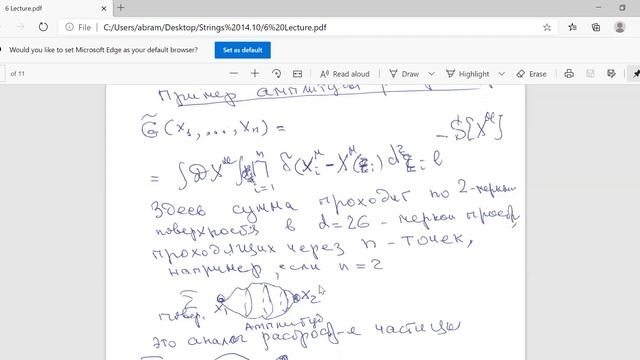 6 Lecture.pdf
File C:/Users/abram/Desktop/Strings%2014.10/6%20Lecture.pdf
Would you like to set Microsoft Edge as your default browser? Set as default
of 11 Read aloud Draw Highlight Erase
Пример амплитуды
G̃(x₁, ..., xₙ) = -S[X^μ]
= ∫DX^μ ∫∏ᵢ₌₁ⁿ δ(xᵢ^μ - X^μ(ξᵢ)) d²ξᵢ e
Здесь сумма проходит по 2-мерным
поверхностям в d=26-мерном простр,
проходящих через n-точек,
например, если n=2
Σ x₁ x₂
повер. Амплитуд
это аналог распростр-я частицы